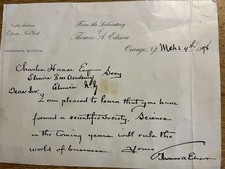 From the Laboratory
of
Thomas A. Edison
Orange, N.J. Mch 24th
Charles Haase Esqr Secy
Elmira Free Academy
Elmira N.Y.
Dear Sir.
I am pleased to hear that you have
formed a scientific society. Science
in the coming years will rule the
world of business Yours
Thomas A Edison